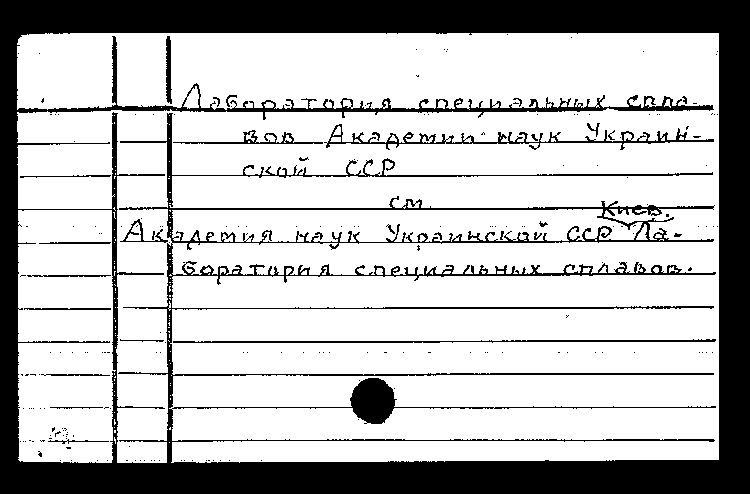 Лаборатория специальных спла-
вов Академии наук Украин-
ской ССР
см.
Киев.
Академия наук Украинской ССР. Ла-
боратория специальных сплавов.